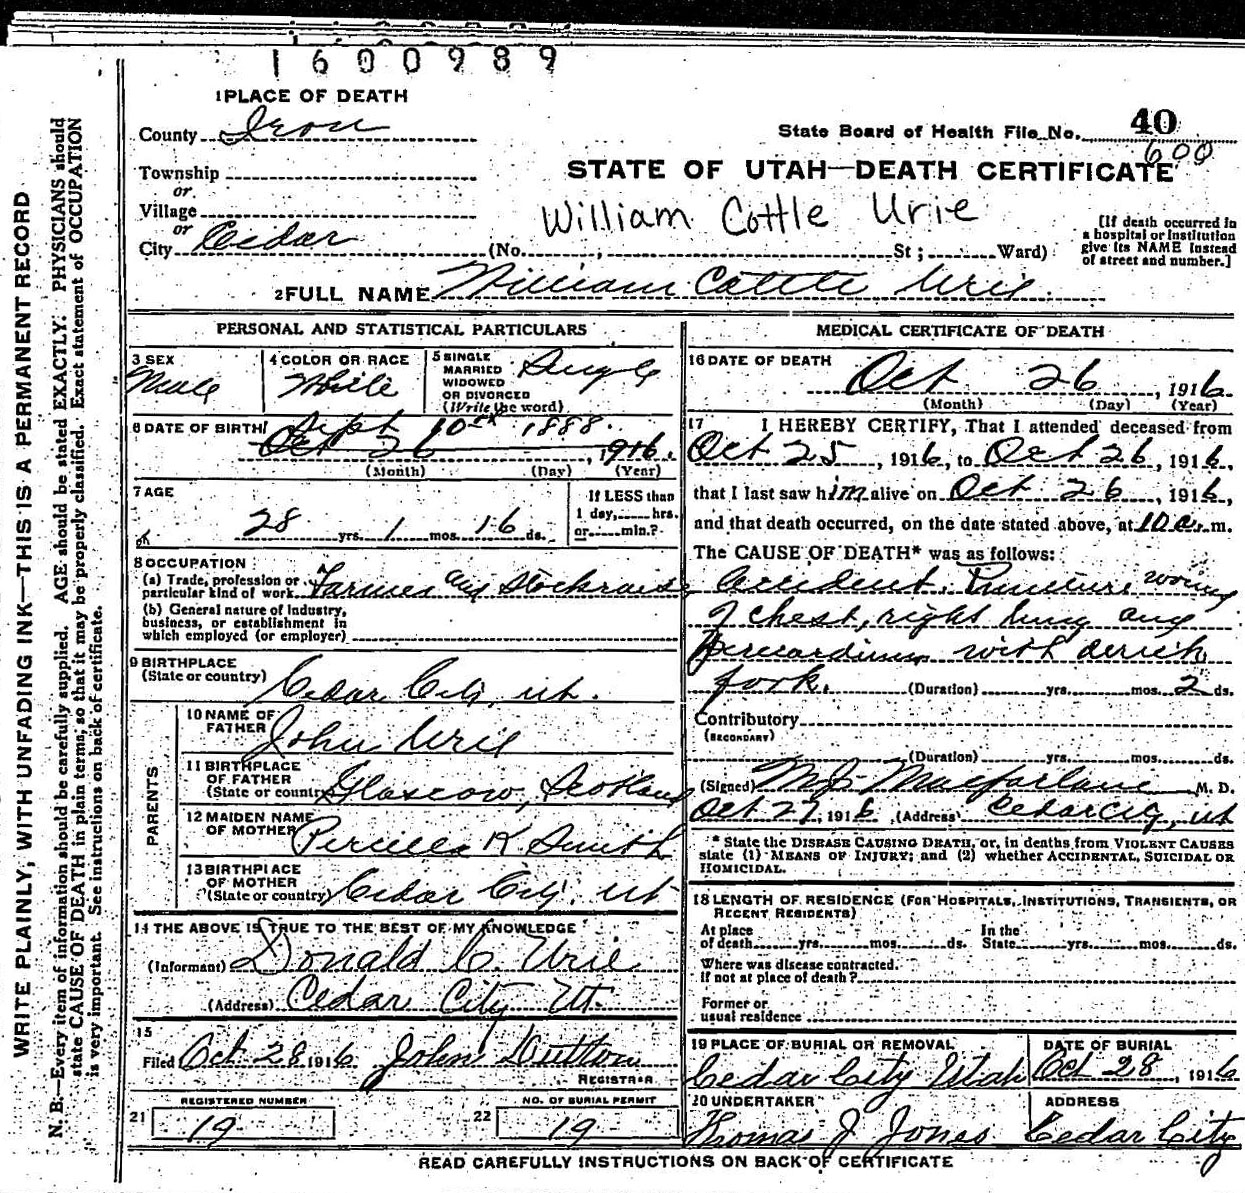 1600989
1 PLACE OF DEATH
County Iron
State Board of Health File No. 40
600
Township
or
Village
or
City Cedar
STATE OF UTAH—DEATH CERTIFICATE
William Cottle Urie
(No. , St ; Ward)
[If death occurred in a hospital or institution give its NAME instead of street and number.]
2 FULL NAME William Cottle Urie.
PERSONAL AND STATISTICAL PARTICULARS
3 SEX
Male
4 COLOR OR RACE
White
5 SINGLE MARRIED WIDOWED OR DIVORCED (Write the word)
Single
6 DATE OF BIRTH
Sept 10th 1888.
Oct 26, 1916.
(Month) (Day) (Year)
7 AGE
28 yrs. 1 mos. 16 ds.
If LESS than 1 day, hrs. or min.?
8 OCCUPATION
(a) Trade, profession or particular kind of work Farmer and Stockraiser
(b) General nature of industry, business, or establishment in which employed (or employer)
9 BIRTHPLACE
(State or country) Cedar City, Ut.
PARENTS
10 NAME OF FATHER John Urie
11 BIRTHPLACE OF FATHER (State or country) Glascow, Scotland
12 MAIDEN NAME OF MOTHER K Smith
13 BIRTHPLACE OF MOTHER (State or country) Cedar City, Ut
14 THE ABOVE IS TRUE TO THE BEST OF MY KNOWLEDGE
(Informant) Donald C. Urie
(Address) Cedar City Ut.
15
Filed Oct 28 1916 John Dutton
REGISTRAR
REGISTERED NUMBER
21 19
NO. OF BURIAL PERMIT
22 19
MEDICAL CERTIFICATE OF DEATH
16 DATE OF DEATH
Oct 26, 1916
(Month) (Day) (Year)
17 I HEREBY CERTIFY, That I attended deceased from
Oct 25, 1916, to Oct 26, 1916,
that I last saw him alive on Oct 26, 1916,
and that death occurred, on the date stated above, at 10 a. m.
The CAUSE OF DEATH* was as follows:
Accident. Puncture wound
of chest, right lung and
Pericardium with derrick
fork. (Duration) yrs. mos. 2 ds.
Contributory
(SECONDARY)
(Duration) yrs. mos. ds.
(Signed) M.J. Macfarlane M. D.
Oct 27, 1916 (Address) Cedar City, Ut
* State the DISEASE CAUSING DEATH, or, in deaths from VIOLENT CAUSES
state (1) MEANS OF INJURY; and (2) whether ACCIDENTAL, SUICIDAL OR
HOMICIDAL.
18 LENGTH OF RESIDENCE (FOR HOSPITALS, INSTITUTIONS, TRANSIENTS, OR
RECENT RESIDENTS)
At place of death yrs. mos. ds. In the State yrs. mos. ds.
Where was disease contracted.
If not at place of death?
Former or
usual residence
19 PLACE OF BURIAL OR REMOVAL
Cedar City Utah
DATE OF BURIAL
Oct 28, 1916
20 UNDERTAKER
Thomas J Jones
ADDRESS
Cedar City
READ CAREFULLY INSTRUCTIONS ON BACK OF CERTIFICATE
WRITE PLAINLY, WITH UNFADING INK—THIS IS A PERMANENT RECORD
N. B.—Every item of information should be carefully supplied. AGE should be stated EXACTLY. PHYSICIANS should
state CAUSE OF DEATH in plain terms, so that it may be properly classified. Exact statement of OCCUPATION
is very important. See instructions on back of certificate.